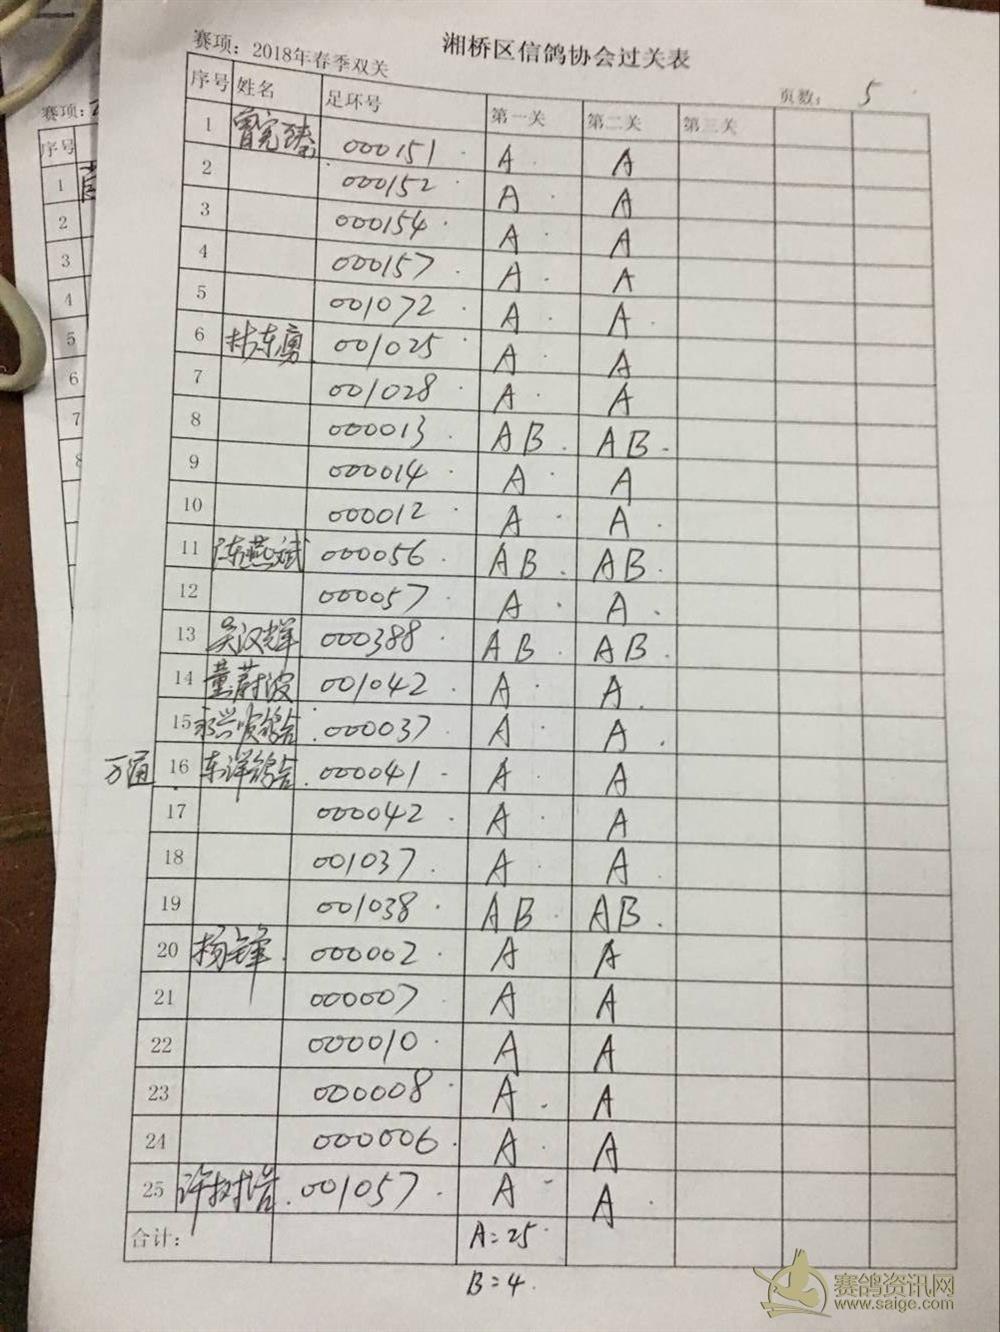 湘桥区信鸽协会过关表
赛项：2018年春季双关
页数： 5
序号 姓名 足环号 第一关 第二关 第三关
1 曾宪臻 000151 A A
2 000152 A A
3 000154 A A
4 000157 A A
5 001072 A A
6 林东勇 001025 A A
7 001028 A A
8 000013 AB AB
9 000014 A A
10 000012 A A
11 陈燕斌 000056 AB AB
12 000057 A A
13 吴汉辉 000388 AB AB
14 董蔚波 001042 A A
15 永兴顺鸽舍 000037 A A
万通 16 东洋鸽舍 000041 A A
17 000042 A A
18 001037 A A
19 001038 AB AB
20 杨锋 000002 A A
21 000007 A A
22 000010 A A
23 000008 A A
24 000006 A A
25 许树浩 001057 A A
合计： A=25
B=4
赛项：
序号
1
2
3
4
5
6
7
8
赛鸽资讯网
www.saige.com